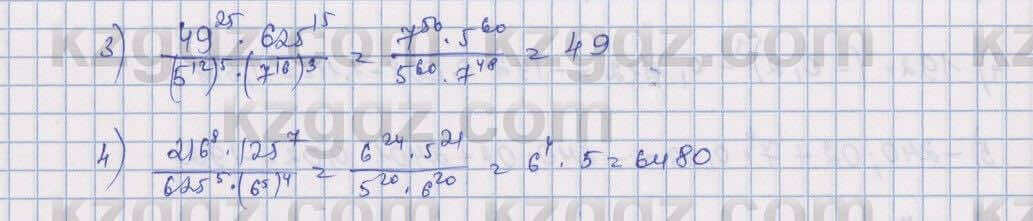 3) \frac{49^{25} \cdot 625^{15}}{(5^{12})^5 \cdot (7^{16})^3} = \frac{7^{50} \cdot 5^{60}}{5^{60} \cdot 7^{48}} = 49
4) \frac{216^8 \cdot 125^7}{625^5 \cdot (6^5)^4} = \frac{6^{24} \cdot 5^{21}}{5^{20} \cdot 6^{20}} = 6^4 \cdot 5 = 6480
kzgdz.com